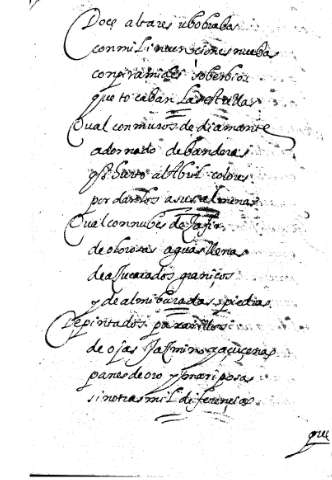 Doce altares ubo brabos
con mil inuençiones nuebas
con piramides soberbios
que tocaban las estrellas
Qual con muros de diamante
adornado de banderas
q hurto al Abril colores
por darlos a sus almenas
Qual con nubes de Zafir
de olorosas aguas llenas
de açucarados graniços
y de almibaradas piedras
De pintados paxarillos
de ojas jasmines açuçenas
panes de oro y mariposas
sin otras mil diferençias
que